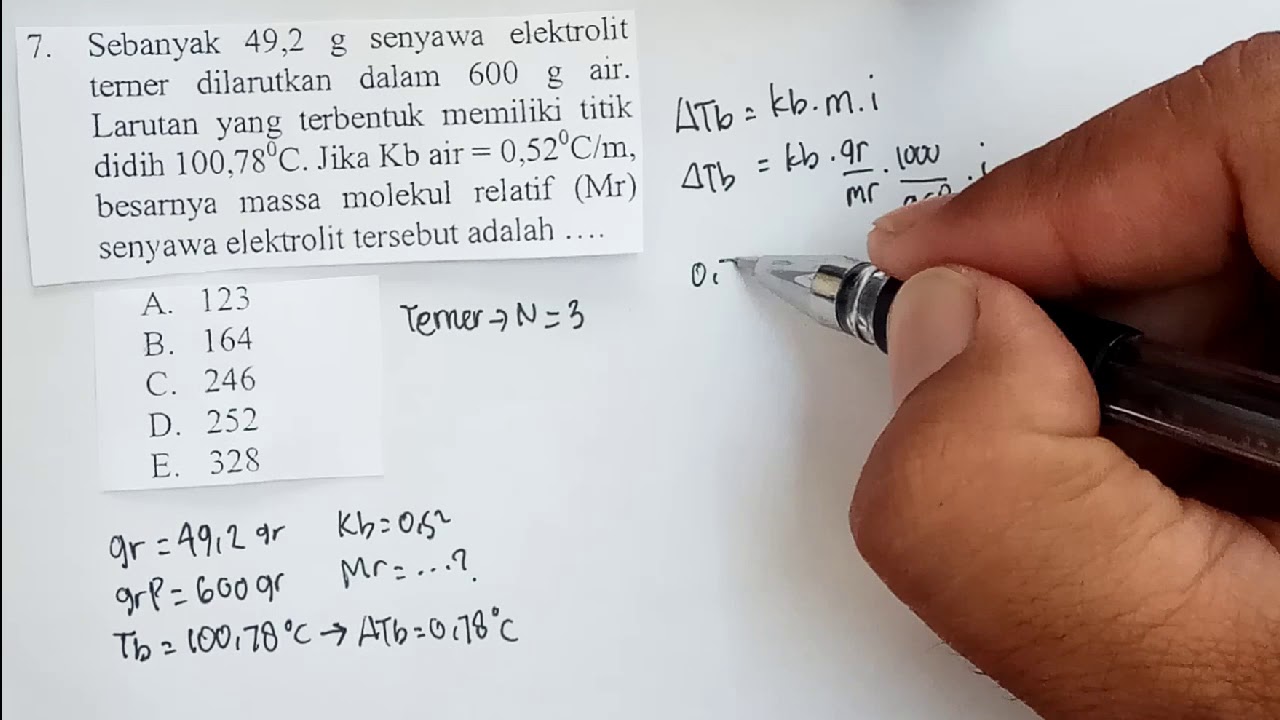 7. Sebanyak 49,2 g senyawa elektrolit
terner dilarutkan dalam 600 g air.
Larutan yang terbentuk memiliki titik
didih 100,78⁰C. Jika Kb air = 0,52⁰C/m,
besarnya massa molekul relatif (Mr)
senyawa elektrolit tersebut adalah ….
A. 123
B. 164
C. 246
D. 252
E. 328
Terner → N = 3
gr = 49,2 gr
grP = 600 gr
Tb = 100,78°C → ΔTb = 0,78°C
Kb = 0,52
Mr = ...?
ΔTb = kb . m . i
ΔTb = kb . gr/mr . 1000/ . i
0,